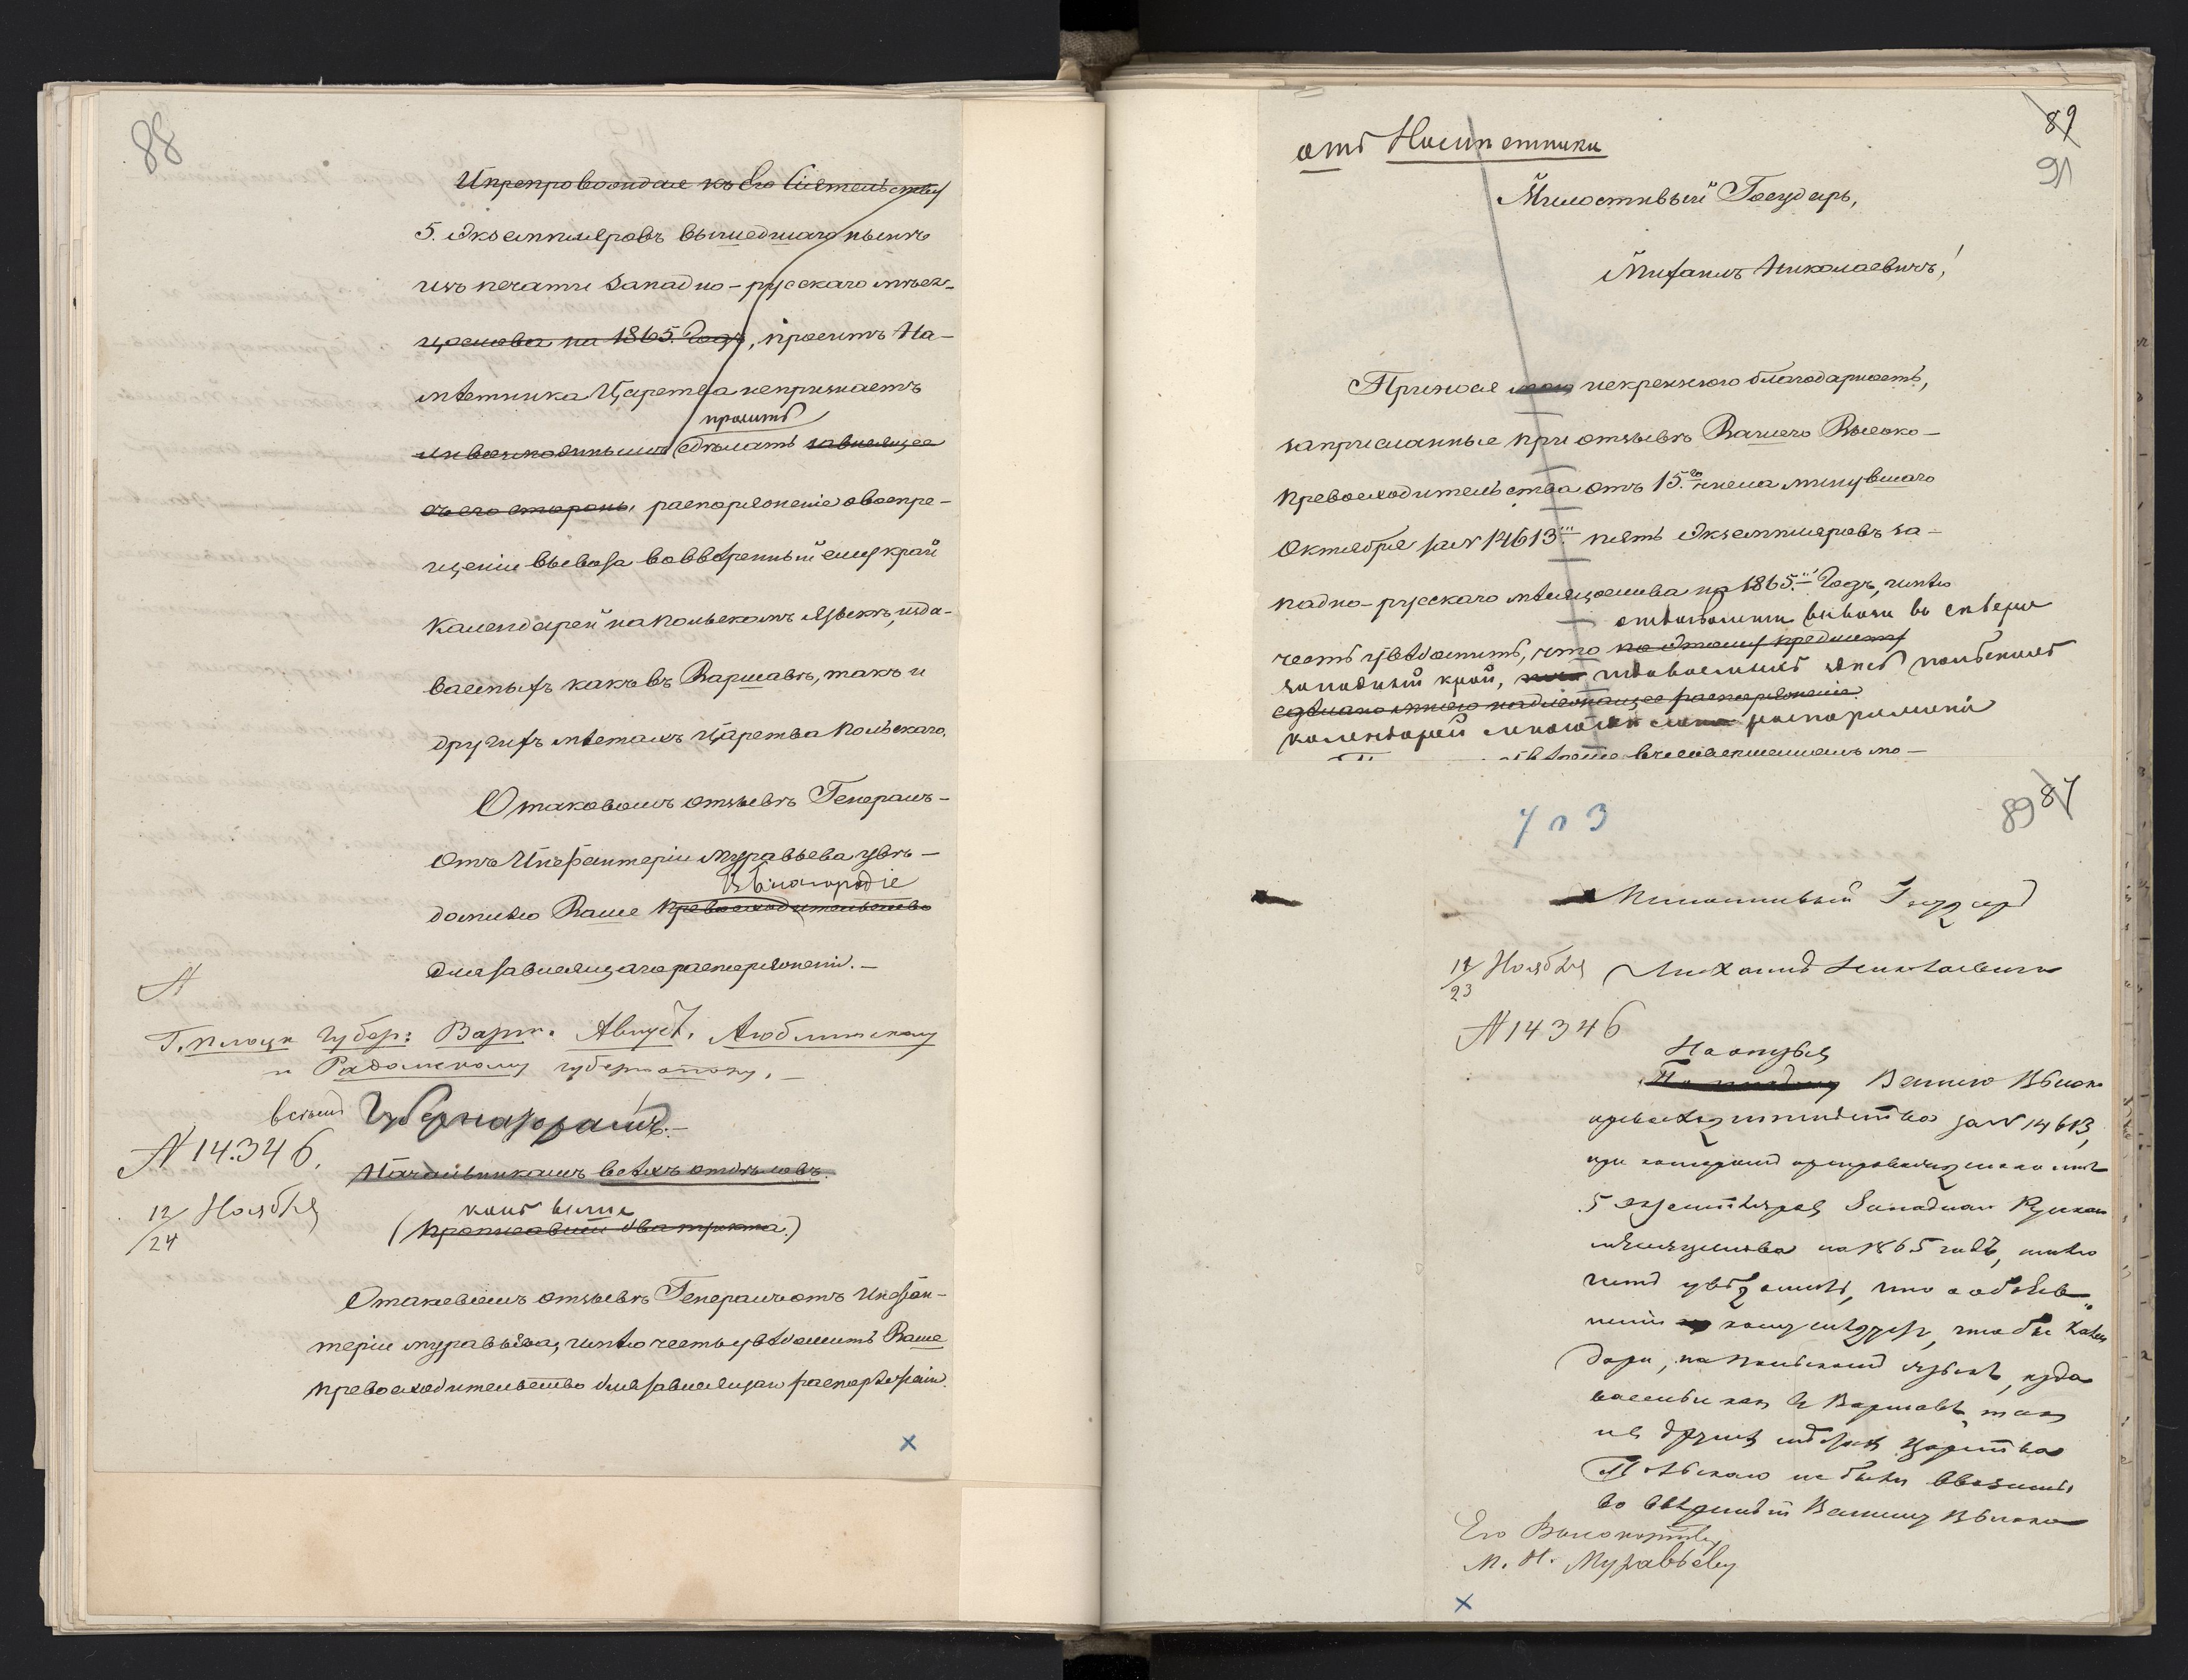 88
И препровождая къ Его Сіятельству
5. экземпляровъ вышедшаго нынѣ
изъ печати Западно-русскаго мѣся-
цеслова на 1865. Годъ, проситъ На-
мѣстника Царства
проситъ
сдѣлать зависящее
съ его стороны, распоряженіе овоспре-
щеніи вывоза во ввѣренный ему край
Календарей на Польскомъ языкѣ, изда-
ваемыхъ какъ въ Варшавѣ, такъ и
другихъ мѣстахъ Царства Польскаго.
О таковомъ отзывѣ Генералъ-
Отъ Инфантеріи Муравьева увѣ-
В Благородіе
домляю Ваше Превосходительство
для зависящаго распоряженія.
Г. Плоцк Губер: Варш. Август. Люблинскому
и Радомскому губернатору.
всѣмъ Губернаторамъ.
N 14.346.
Начальникамъ всѣхъ отдѣловъ
12/24 Ноября
какъ выше
(Прописавши два пункта.)
О таковомъ отзывѣ Генералъ отъ Инфан-
теріи Муравьева, имѣю честь увѣдомить Ваше
Превосходительство для зависящаго распоряженія.
х
89
91
отъ Намѣстника
Милостивый Государь,
Михаилъ Николаевичъ!
Принося мою искреннюю благодарность,
за присланные при отзывѣ Вашего Высоко-
превосходительства отъ 15.го числа минувшаго
Октября за N 14613. пять экземпляровъ за-
падно-русскаго мѣсяцеслова на 1865. Годъ, имѣю
вывоза въ сѣверо
честь увѣдомить, что по этому предмету
западный край, издаваемыхъ польскихъ
сдѣлано мною надлежащее распоряженіе.
календарей распоряженія
89 87
Милостивый Государь
12/23 Ноября Михаилъ Николаевичъ
N 14346
На отзывъ
Вашего Высоко
превосходительства за N 14613,
при которомъ препровождено мнѣ
5 экземпляровъ Западно Русскаго
мѣсяцеслова на 1865 годъ, имѣю
честь увѣдомить, что о объявле-
ніи кому слѣдуетъ, чтобы Кален
дари, на польскомъ языкѣ, изда
ваемые какъ въ Варшавѣ, такъ
и въ другихъ мѣстахъ Царства
Польскаго не были ввозимы
во ввѣренный Вашему Высоко
Его Высокопр-ству
М. Н. Муравьеву
х